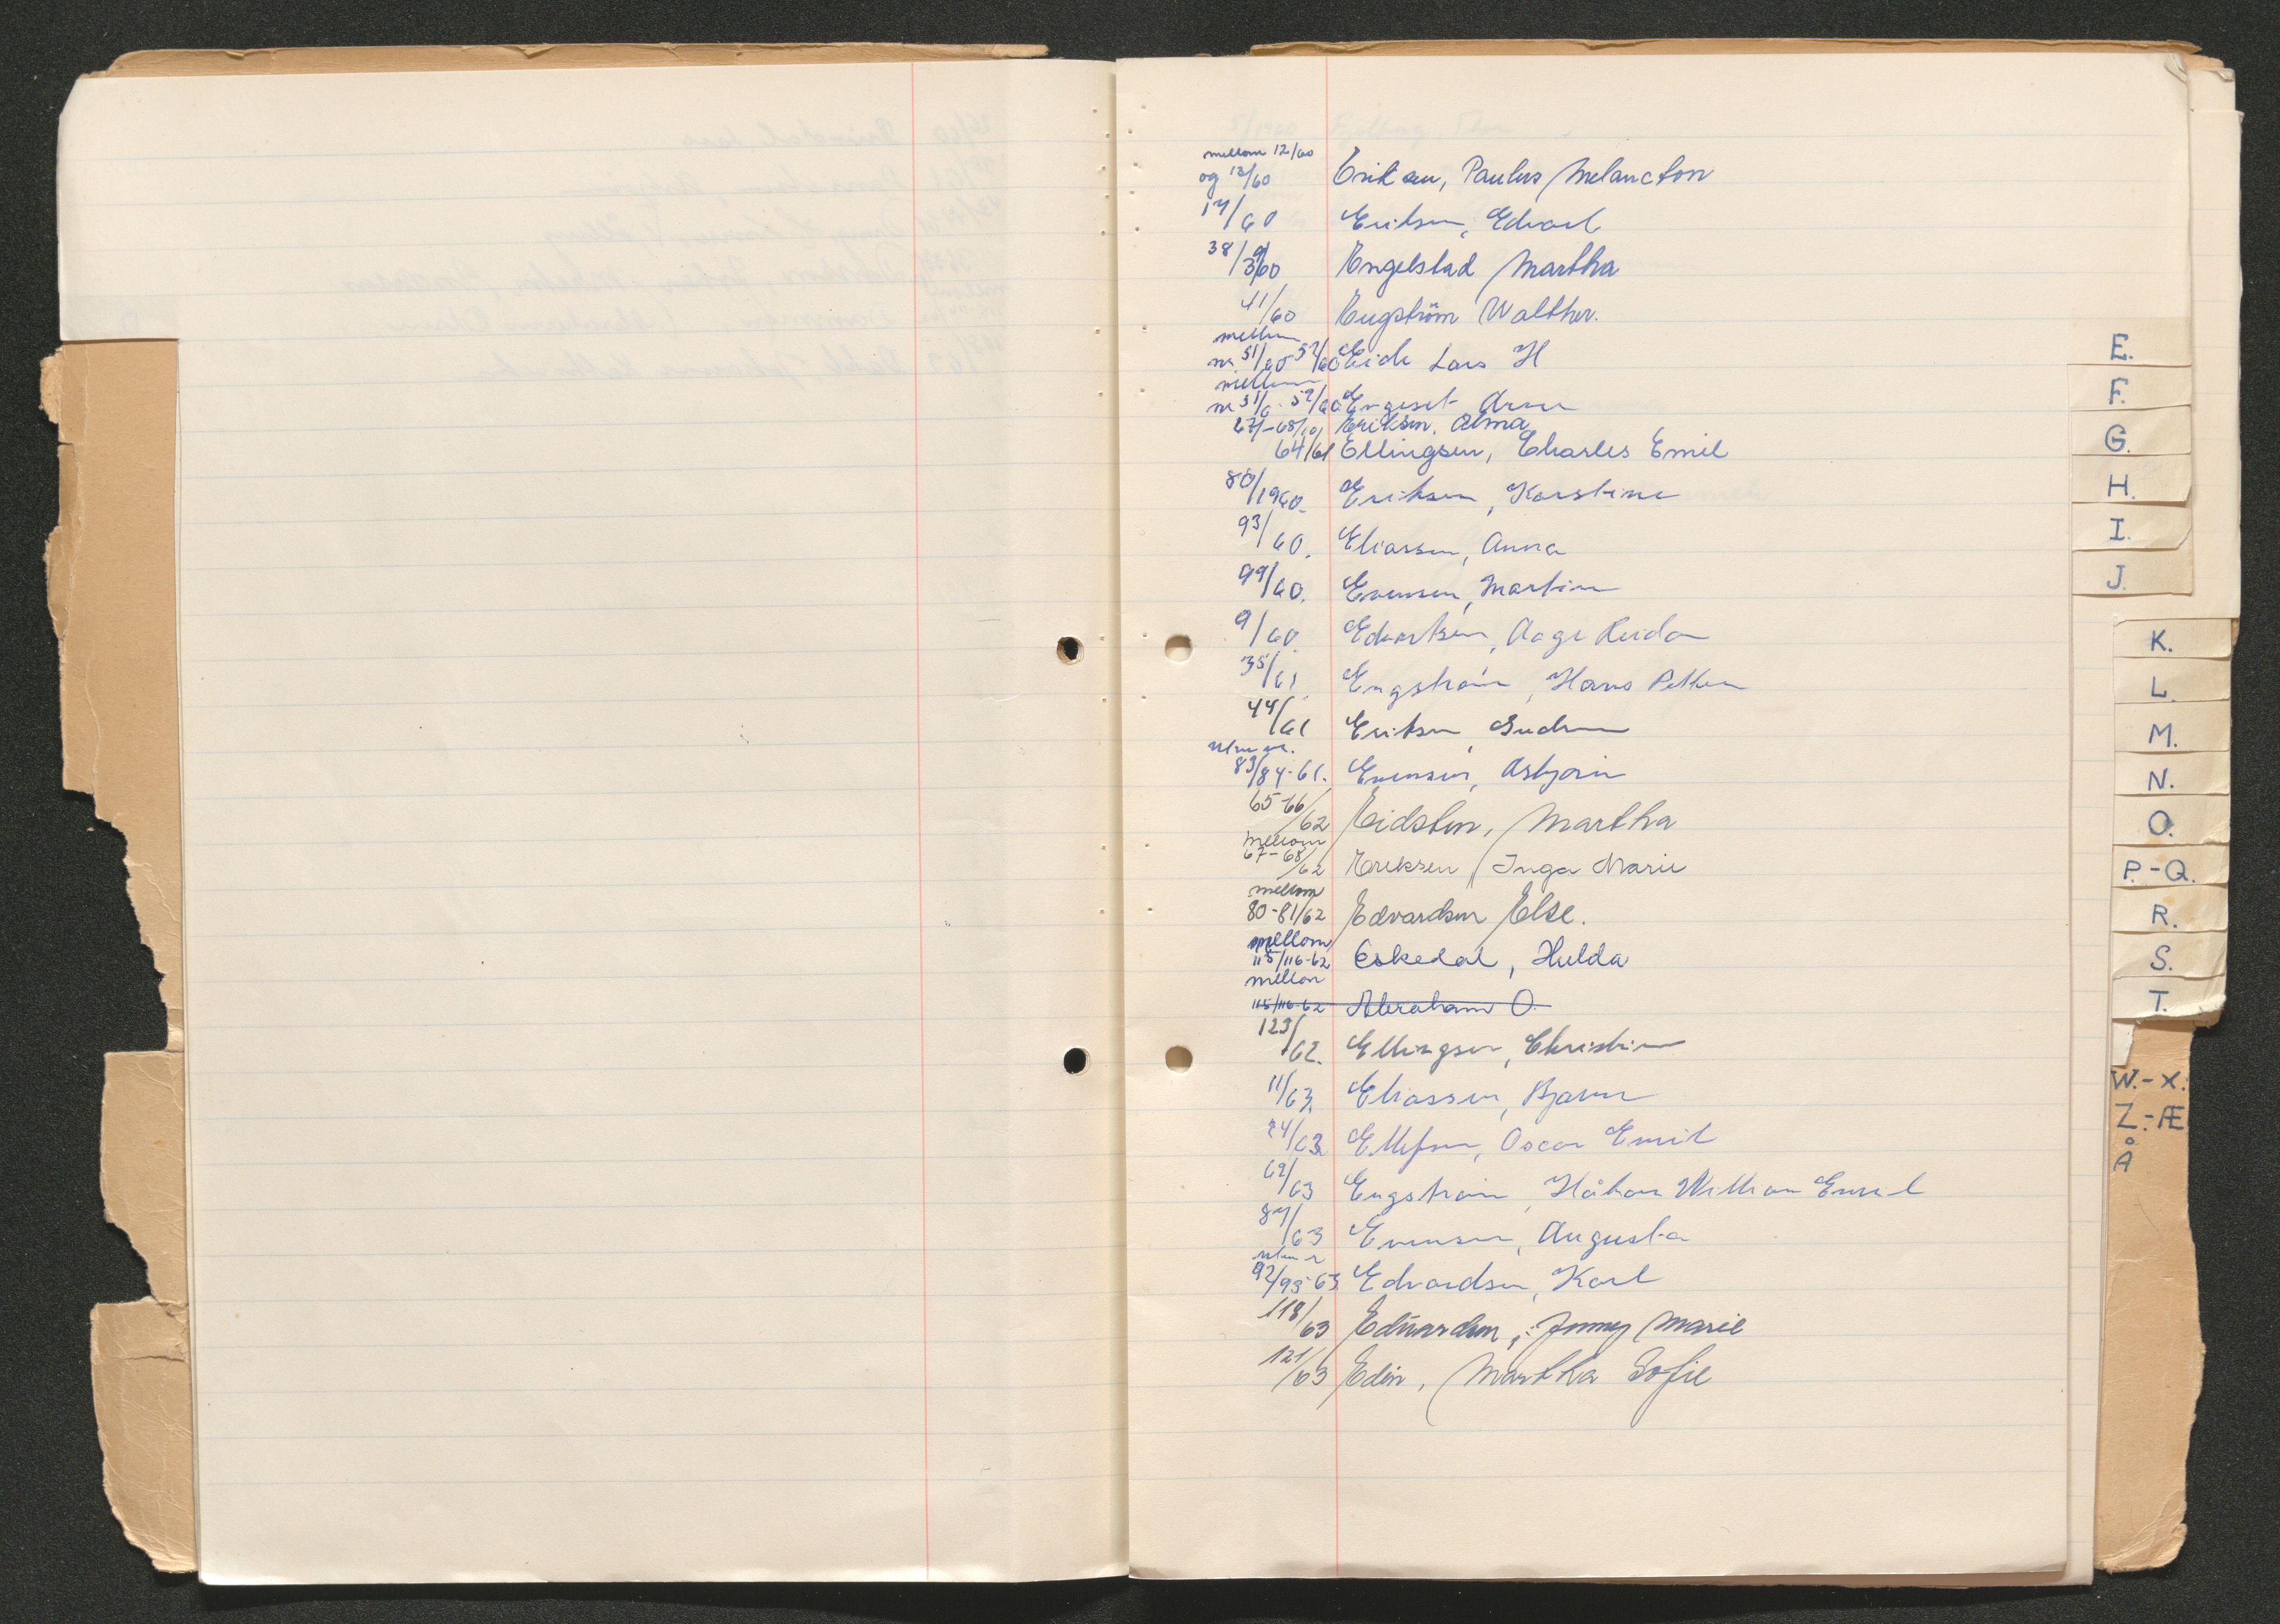 mellom 12/60
og 12/60 Eriksen, Paulus Melancton
17/60 Eriksen, Edvard
38/60 Engelstad Martha
41/60 Engström Walther.
mellem
nr. 51/60 52/60 Eide Lars H
mellem
nr 51/6 52/60 Engeset Arne
67/-68/60 Eriksen. Alma
64/61 Ellingsen, Charles Emil
80/1960. Eriksen, Karstine
93/60. Eliassen, Anna
99/60. Evensen, Martin
9/60. Edvartsen, Aage Reidar
35/61. Engstrøm, Hans Petter
44/61 Eriksen, Gudrun
uten nr.
83/84-61. Evensen, Asbjørn
65-66/62 Eidsten, Martha
mellom
67-68/62 Ereksen Inga Marie
mellom
80-81/62 Edvardsen Else.
mellom
115/116-62 Eskedal, Hulda
mellom
115/116-62 Abraham O.
123/62. Ellingsen, Christian
11/63. Eliassen, Bjarne
24/63. Ellefsen, Oscar Emil
69/63 Engstrøm, Håkon William Emil
87/63 Evensen, Augusta
uten nr
92/93-63 Edvardsen, Karl
118/63 Edvardsen, Jenny Marie
121/63 Edin, Martha Sofie
E.
F.
G.
H.
I.
J.
K.
L.
M.
N.
O.
P.-Q.
R.
S.
T.
W.-X.
Z.-Æ
Å